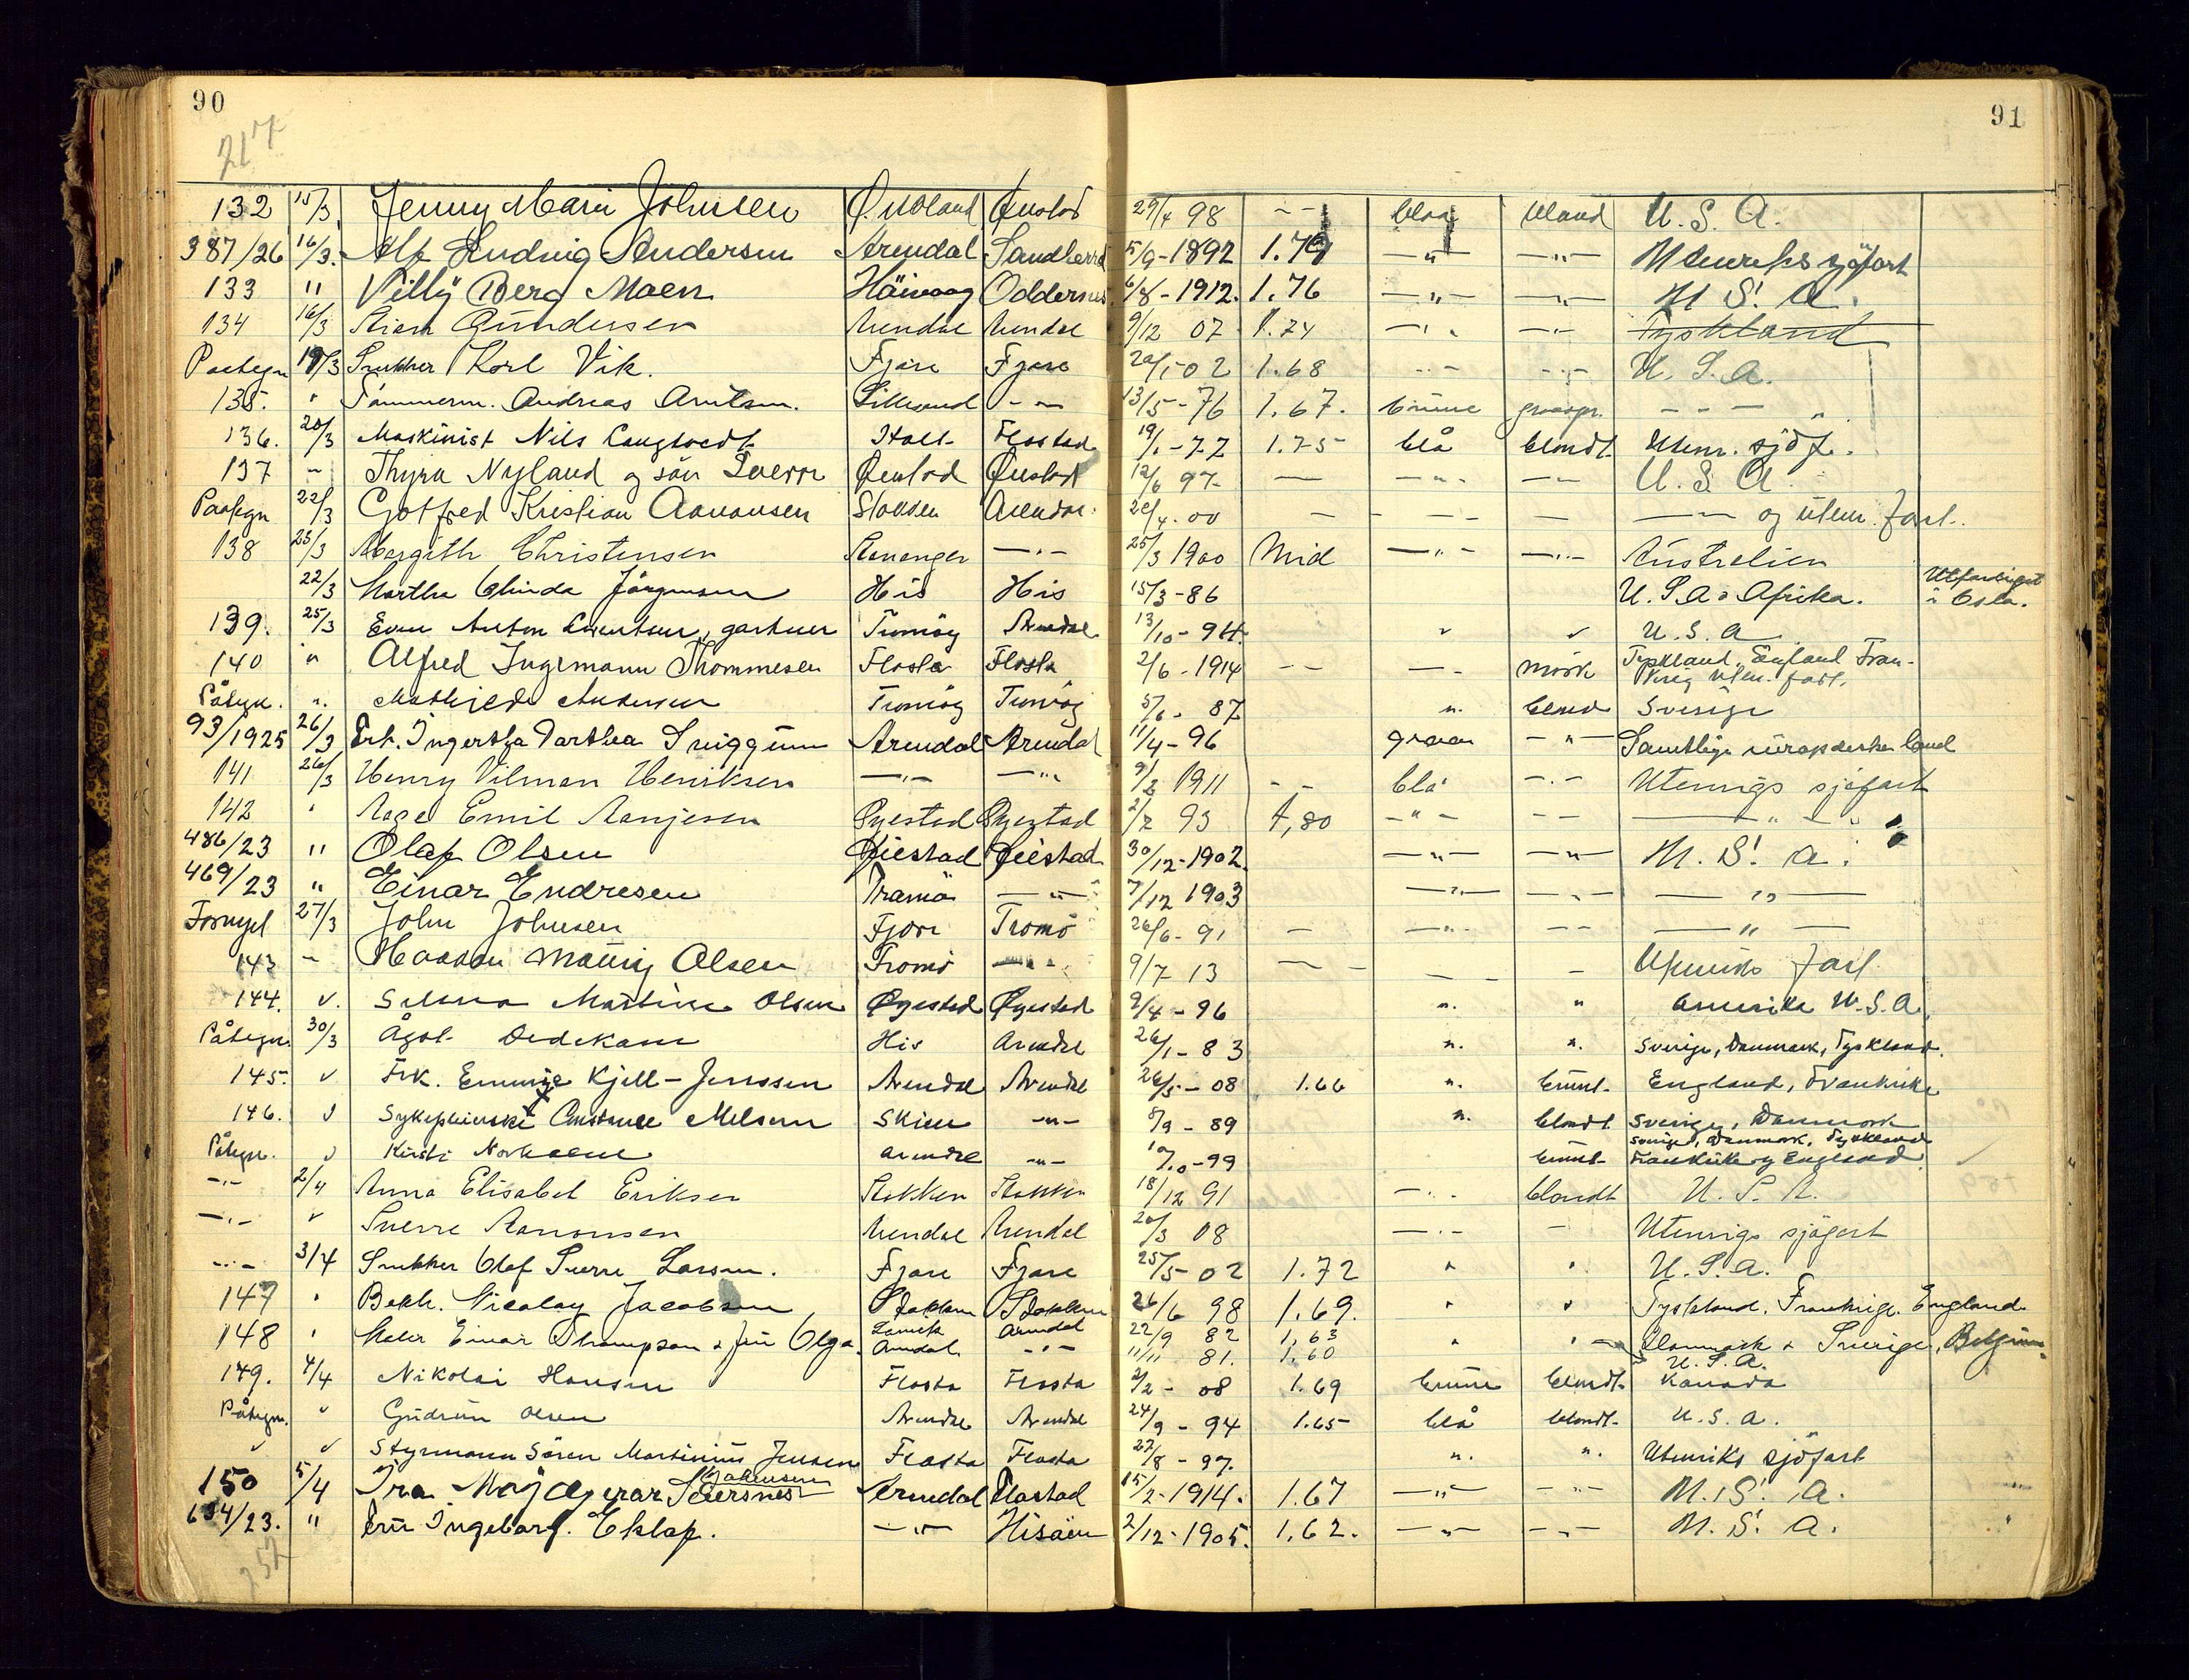 90
91
217
132 15/3 Jenny Marie Johnsen Øiestad 29/4 98 -- blaa blond U.S.A.
387/26 16/3. Alf Ludvig Andersen Arendal Sandherred 5/9-1892 1.79 —"— —"— Utenriks sjøfart
133 " Villy Berg Moen Häivaag Oddernes 6/8-1912. 1.76 —"— —"— U.S.A.
134 16/3 Stian Gundersen Arendal Arendal 9/12 07 1.74 —"— —"— Tyskland
Paategn 19/3 Snekker Karl Vik. Fjære Fjære 20/1-02 1.68 -"- -"- U.S.A.
135. " Tømmerm. Andreas Arntsen. Lillesand -"- 13/5-76 1.67. brune graaspr. - - -
136. 20/3 Maskinist Nils Langtvedt Holt Flostad 19/1-77 1.75 blå blondt. Utenr. sjöf.
137 - Thyra Nyland og sön Sverre Øiestad Øiestad 12/6 97 — -"- -"- U.S.A.
Paategn 22/3 Gotfred Kristian Aanonsen Stokken Arendal. 20/4.00 — - - — —"— og utenr. fart.
138 23/3 Margith Christensen Stavanger —"— 25/3 1900 Mid —"— —"— Australien
22/3 Martha Olinda Jörgensen His His 15/3-86 U.S.A & Afrika. Utfærdiget i Oslo.
139. 25/3 Even Anton Evensen, gartner Tromöy Arendal 13/10-94. " " U.S.A
140 " Alfred Ingemann Thommesen Flosta Flosta 2/6-1914 -- —"— mörk Tyskland, England Fran-
krig Uten. fart.
Påtegn. ". Mathilde Andersen Tromöy Tromöy 5/6- 87 ". blond Sverige
93/1925 26/3 Frk. Ingertha Darthea Sniggum Arendal Arendal 11/4-96 graa -"- Samtlige europæiske land
141 26/3 Henry Vilman Henriksen —"— —"— 9/2 1911 -- blå -"- Utenrigs sjøfart
142 " Aage Emil Aanjesen Øyestad Øyestad 2/2 93 1,80 -"- -- —"—
486/23 " Olaf Olsen Øiestad Øiestad 30/12-1902. —"— —"— U.S.A.
469/23 " Einar Endresen Tromö —"— 7/12 1903 —"— —"— —"—
Fornyel 27/3 John Johnsen Fjære Tromö 26/6-91 — -"- -- —"—
143 - Haakon Olsen Tromö —"— 9/7 13 — — - Utenriks Fart
144. ". Selma Martine Olsen Øyestad Øyestad 9/4-96 ". " Amerika U.S.A.
Påtegn. 30/3 Ågot Dedekam His Arendal 26/1-83 ". ". Sverige, Danmark, Tyskland.
145. " Frk. Emmy Kjell-Jenssen Arendal Arendal 26/5-08 1.66 ". brunt. England, Frankrike
146. " Sykepleierske Constance Melsom Skien -"- 8/9-89 ". blondt. Sverige, Danmark
Påtegn. " Kirsti Arendal -"- 9/10-99 brunt Sverige, Danmark, Tyskland
Frankrike og England
-"- 2/4 Anna Elisabet Eriksen Stokken Stokken 18/12 91 —"— blondt U.S.A.
-"- " Sverre Aanonsen Arendal Arendal 20/3 08 —"— - Utenrigs sjøfart
-"- 3/4 Snekker Olaf Sverre Larsen. Fjære Fjære 25/5-02 1.72 " " U.S.A.
147 " Nicolay Jacobsen Stokken Stokken 26/6 98 1.69. " " Tyskland. Frankrige. England
148 " Maler Einar Thompson & fru Olga. Arendal 22/9 82 1,63 " " Danmark & Sverige, Belgien
Arendal. -"- 11/11 81. 1.60 U.S.A.
149. 4/4 Nikolai Hansen Flosta Flosta 2/2-08 1.69 brune blondt. Kanada
Påtegn. " Gudrun Olsen Arendal Arendal 24/9-94 1.65 blå blondt. U.S.A.
" " Styrmann Sören Martinius Jensen Flosta Flosta 27/8-97. ". ". Utenriks sjöfart
Johansen
150 5/4 Arendal Flostad 15/2-1914. 1.67 —"— -"- U.S.A.
634/23. " Fru Ingeborg. Eklof. —"— Hisöen 2/12-1905. 1.62. —"— —"— U.S.A.
252